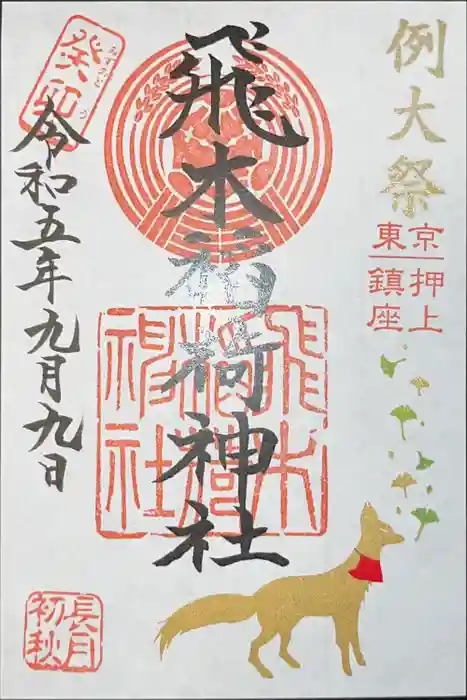 例大祭
東京
押上
鎮座
飛木稲荷神社
飛木
稲荷
神社
癸卯
みずのと
う
令和五年九月九日
長月
初秋